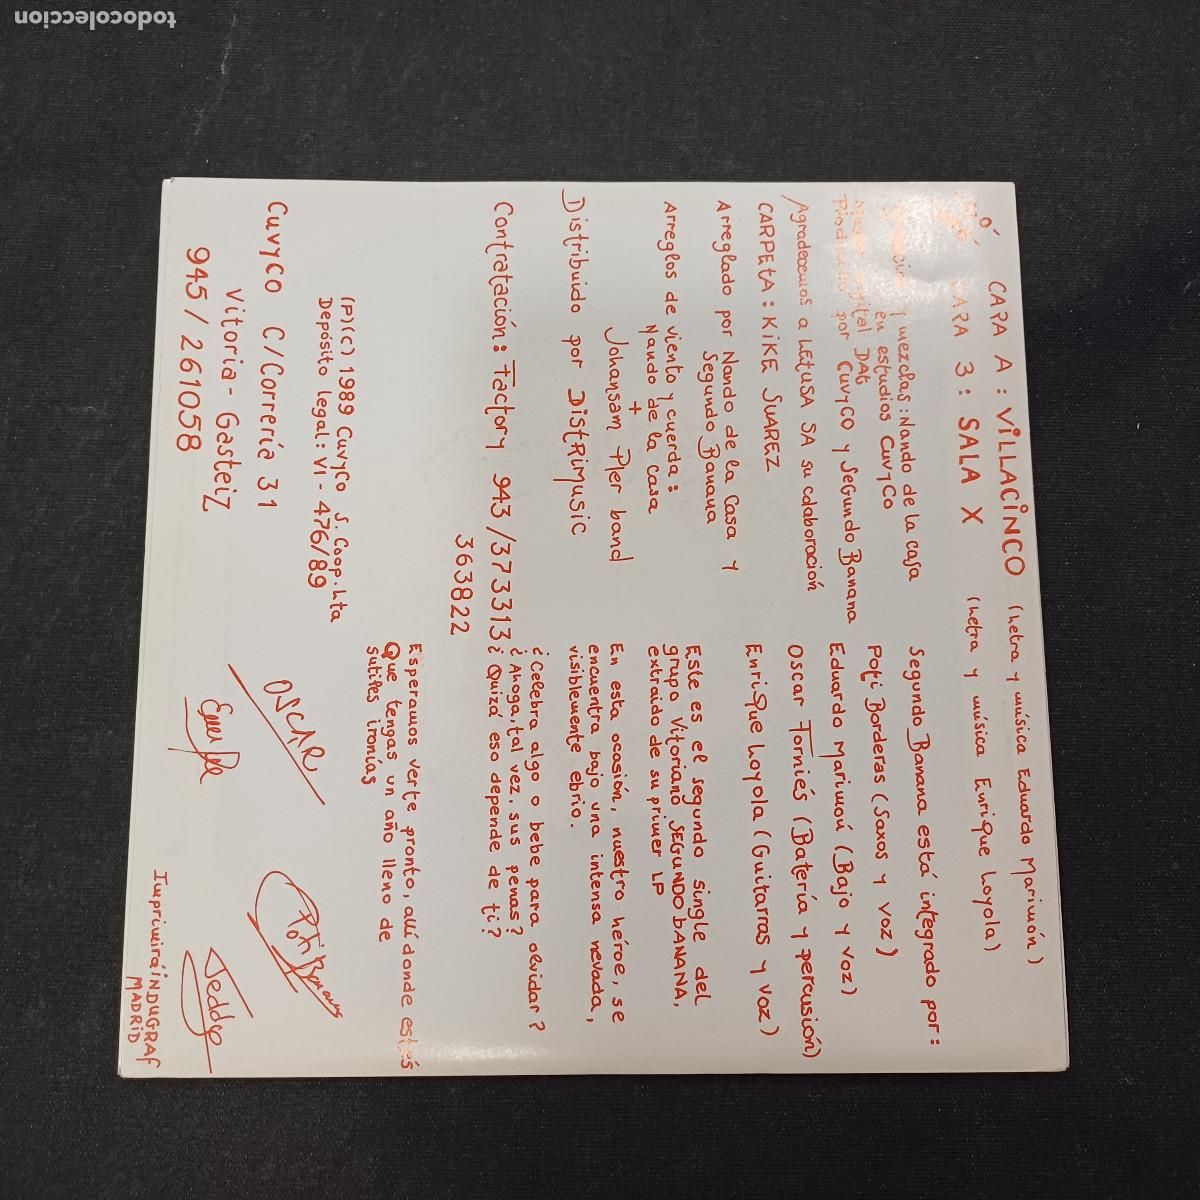 CARA A: ViLLACiNCO (Letra y música Eduardo Marimón)
CARA 3: SALA X (Letra y música Enrique Loyola)
y mezclas: Nando de la Casa
en estudios CuvyCo
DAT
Producido por CuvyCo y Segundo Banana
Agradecemos a LETUSA SA su colaboración
CARPETA: KiKE SUAREZ
Arreglado por Nando de la Casa y
Segundo Banana
Arreglos de viento y cuerda:
Nando de la Casa
+
Johansam Pler band
Distribuido por DistRiMusic
Contratación: Factory 943/373313
363822
(P)(C) 1989 CuvyCo S.Coop.Lta
Depósito legal: VI-476/89
CuvyCo C/Correría 31
Vitoria-Gasteiz
945/261058
Segundo Banana está integrado por:
Poti Borderas (Saxos y voz)
Eduardo Marimón (Bajo y voz)
Oscar Torniés (Batería y percusión)
Enrique Loyola (Guitarras y voz)
Este es el segundo single del
grupo Vitoriano SEGUNDO bANANA,
extraido de su primer LP
En esta ocasión, nuestro héroe, se
encuentra bajo una intensa nevada,
visiblemente ebrio.
¿Celebra algo o bebe para olvidar?
¿Ahoga, tal vez, sus penas?
¿Quizá eso depende de ti?
Esperamos verte pronto, allí donde estés
Que tengas un año lleno de
sutiles ironías
OSCAR
Enrique
Poti Banana
Teddy
Imprimirá iNDUGRAF
MADRID
todocoleccion